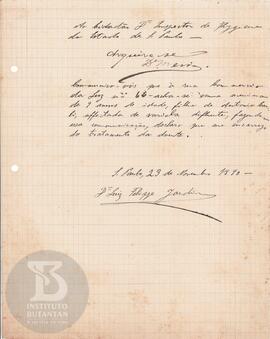 Ao Cidadão Dr Inspector de Hygiene
do Estado de S. Paulo
Archive-se
Communico-vos que á rua Commercio
da Luz nº 66 acha-se uma menina
de 9 annos de idade, filha de Antonio
affectada de variola, fazendo
esta communicação, declaro que me encarrego
do tratamento da doente.
S. Paulo, 29 de Novembro 1890
Dr Luiz Felippe Jardim
INSTITUTO
BUTANTAN